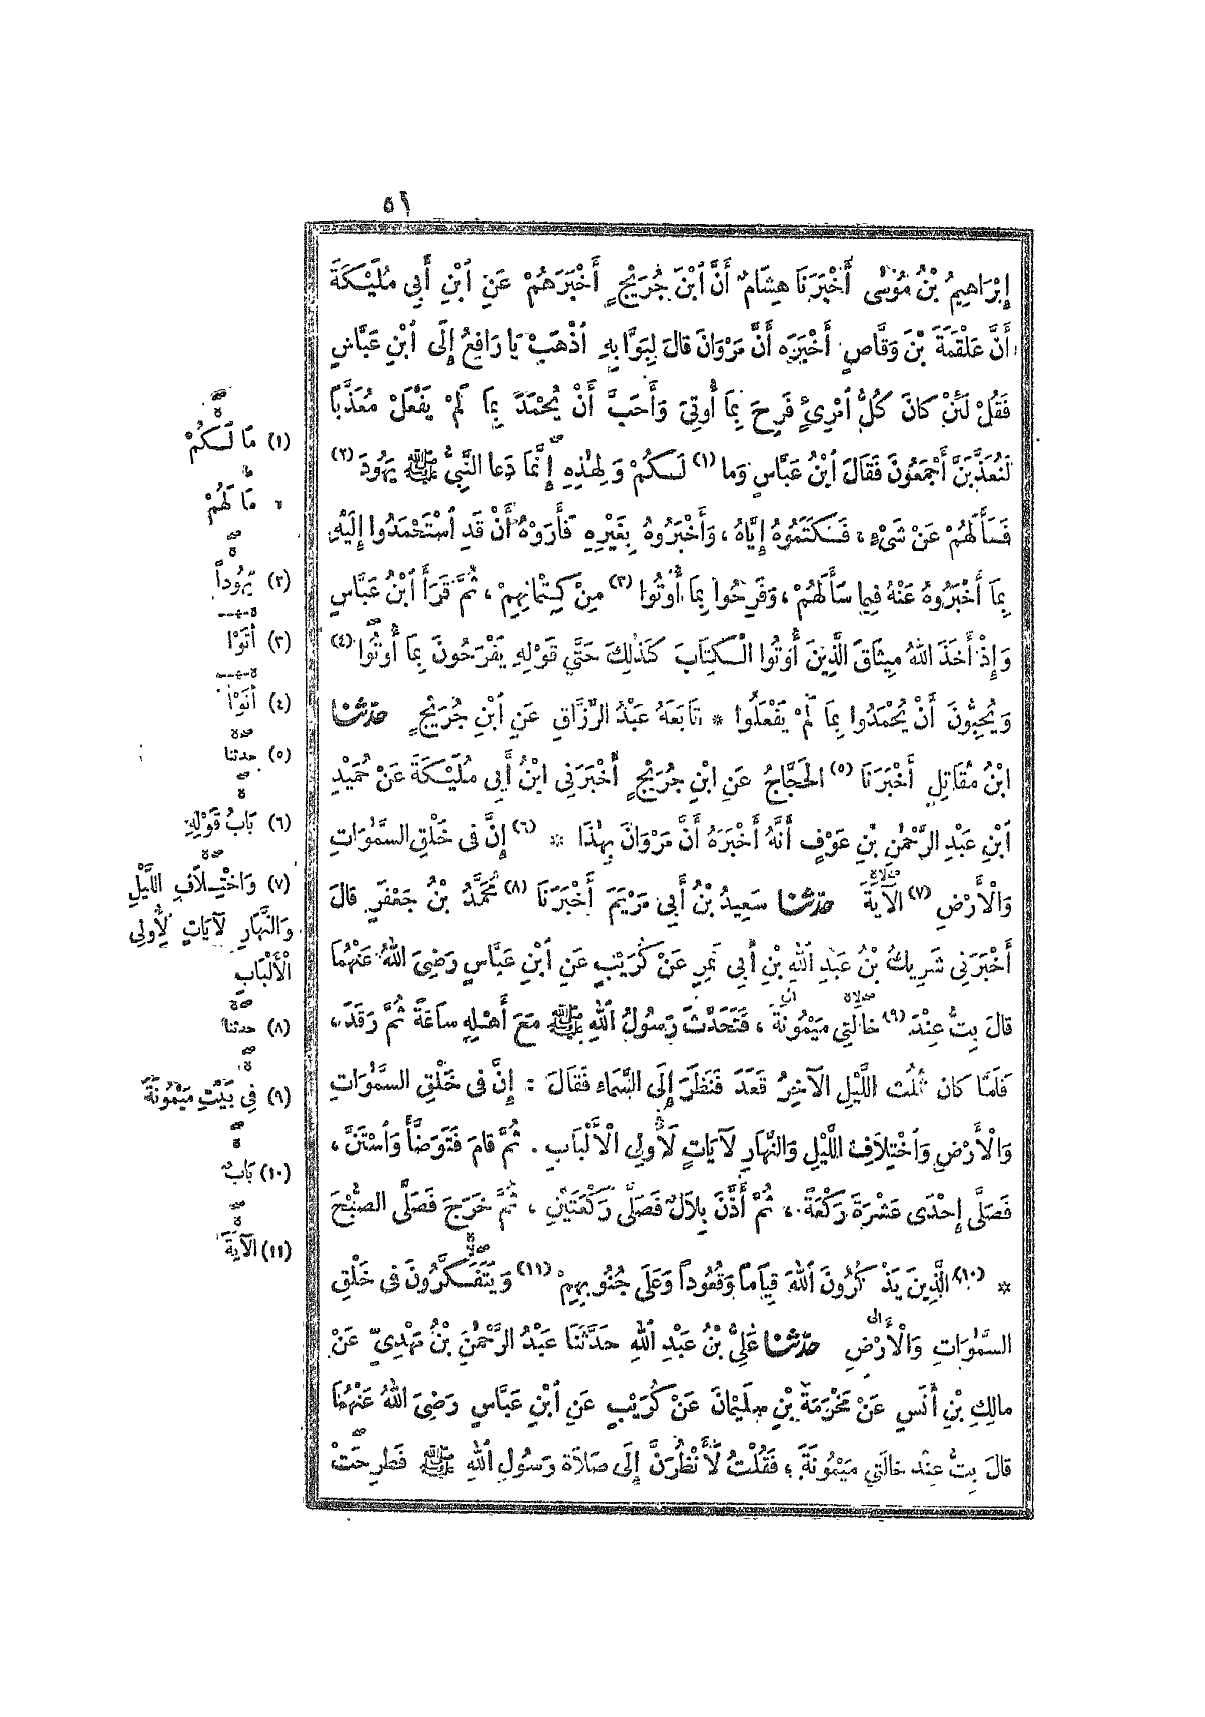 ٥١
إِبْرَاهِيمُ بْنُ مُوسَى أَخْبَرَنَا هِشَامٌ أَنَّ ابْنَ جُرَيْجٍ أَخْبَرَهُمْ عَنِ ابْنِ أَبِي مُلَيْكَةَ
أَنَّ عَلْقَمَةَ بْنَ وَقَّاصٍ أَخْبَرَهُ أَنَّ مَرْوَانَ قالَ لِبَوَّابِهِ اذْهَبْ يَا رَافِعُ إِلَى ابْنِ عَبَّاسٍ
فَقُلْ لَئِنْ كانَ كُلُّ امْرِئٍ فَرِحَ بِمَا أُوتِيَ وَأَحَبَّ أَنْ يُحْمَدَ بِمَا لَمْ يَفْعَلْ مُعَذَّباً
لَنُعَذَّبَنَّ أَجْمَعُونَ فَقَالَ ابْنُ عَبَّاسٍ وَما (١) لَكُمْ وَلِهٰذِهِ إِنَّمَا دَعا النَّبِيُّ ﷺ يَهُودَ (٢)
فَسَأَلَهُمْ عَنْ شَيْءٍ، فَكَتَمُوهُ إِيَّاهُ، وَأَخْبَرُوهُ بِغَيْرِهِ فَأَرَوْهُ أَنْ قَدِ اسْتَحْمَدُوا إِلَيْهِ
بِمَا أَخْبَرُوهُ عَنْهُ فِيما سَأَلَهُمْ، وَفَرِحُوا بِمَا أُوتُوا (٣) مِنْ كِتْمَانِهِمْ، ثُمَّ قَرَأَ ابْنُ عَبَّاسٍ
وَإِذْ أَخَذَ اللهُ مِيثَاقَ الَّذِينَ أُوتُوا الْكِتَابَ كَذٰلِكَ حَتَّى قَوْلِهِ يَفْرَحُونَ بِمَا أُوتُوا (٤)
وَيُحِبُّونَ أَنْ يُحْمَدُوا بِمَا لَمْ يَفْعَلُوا * تَابَعَهُ عَبْدُ الرَّزَّاقِ عَنِ ابْنِ جُرَيْجٍ حدّثنا
ابْنُ مُقَاتِلٍ أَخْبَرَنَا (٥) الحَجَّاجُ عَنِ ابْنِ جُرَيْجٍ أَخْبَرَنِي ابْنُ أَبِي مُلَيْكَةَ عَنْ حُمَيْدِ
ابْنِ عَبْدِ الرَّحْمٰنِ بْنِ عَوْفٍ أَنَّهُ أَخْبَرَهُ أَنَّ مَرْوَانَ بِهٰذَا * (٦) إِنَّ فِي خَلْقِ السَّمٰوَاتِ
وَالْأَرْضِ (٧) الآيَةَ حدّثنا سَعِيدُ بْنُ أَبِي مَرْيَمَ أَخْبَرَنَا (٨) مُحَمَّدُ بْنُ جَعْفَرٍ قالَ
أَخْبَرَنِي شَرِيكُ بْنُ عَبْدِ اللهِ بْنِ أَبِي نَمِرٍ عَنْ كُرَيْبٍ عَنِ ابْنِ عَبَّاسٍ رَضِيَ اللهُ عَنْهُمَا
قالَ بِتُّ عِنْدَ (٩) خالَتِي مَيْمُونَةَ، فَتَحَدَّثَ رَسُولُ اللهِ ﷺ مَعَ أَهْلِهِ سَاعَةً ثُمَّ رَقَدَ،
فَلَمَّا كانَ ثُلُثُ اللَّيْلِ الآخِرُ قَعَدَ فَنَظَرَ إِلَى السَّمَاءِ فَقَالَ : إِنَّ فِي خَلْقِ السَّمٰوَاتِ
وَالْأَرْضِ وَاخْتِلاَفِ اللَّيْلِ وَالنَّهَارِ لَآيَاتٍ لِأُولِي الْأَلْبَابِ . ثُمَّ قامَ فَتَوَضَّأَ وَاسْتَنَّ،
فَصَلَّى إِحْدَى عَشْرَةَ رَكْعَةً، ثُمَّ أَذَّنَ بِلاَلٌ فَصَلَّى رَكْعَتَيْنِ، ثُمَّ خَرَجَ فَصَلَّى الصُّبْحَ
* (١٠) الَّذِينَ يَذْكُرُونَ اللهَ قِيَاماً وَقُعُوداً وَعَلَى جُنُوبِهِمْ (١١) وَيَتَفَكَّرُونَ فِي خَلْقِ
السَّمٰوَاتِ وَالْأَرْضِ حدّثنا عَلِيُّ بْنُ عَبْدِ اللهِ حَدَّثَنَا عَبْدُ الرَّحْمٰنِ بْنُ مَهْدِيٍّ عَنْ
مالِكِ بْنِ أَنَسٍ عَنْ مَخْرَمَةَ بْنِ سُلَيْمَانَ عَنْ كُرَيْبٍ عَنِ ابْنِ عَبَّاسٍ رَضِيَ اللهُ عَنْهُمَا
قالَ بِتُّ عِنْدَ خالَتِي مَيْمُونَةَ، فَقُلْتُ لَأَنْظُرَنَّ إِلَى صَلاَةِ رَسُولِ اللهِ ﷺ فَطُرِحَتْ
(١) مَا لَكُمْ
مَا لَهُمْ
(٢) يَهُوداً
(٣) أَتَوْا
(٤) أَتَوْا
(٥) حدثنا
(٦) بَابُ قَوْلِهِ
(٧) وَاخْتِلاَفِ اللَّيْلِ
وَالنَّهَارِ لَآيَاتٍ لِأُولِي
الْأَلْبَابِ
(٨) حدثنا
(٩) فِي بَيْتِ مَيْمُونَةَ
(١٠) بَابٌ
(١١) الآيَةَ